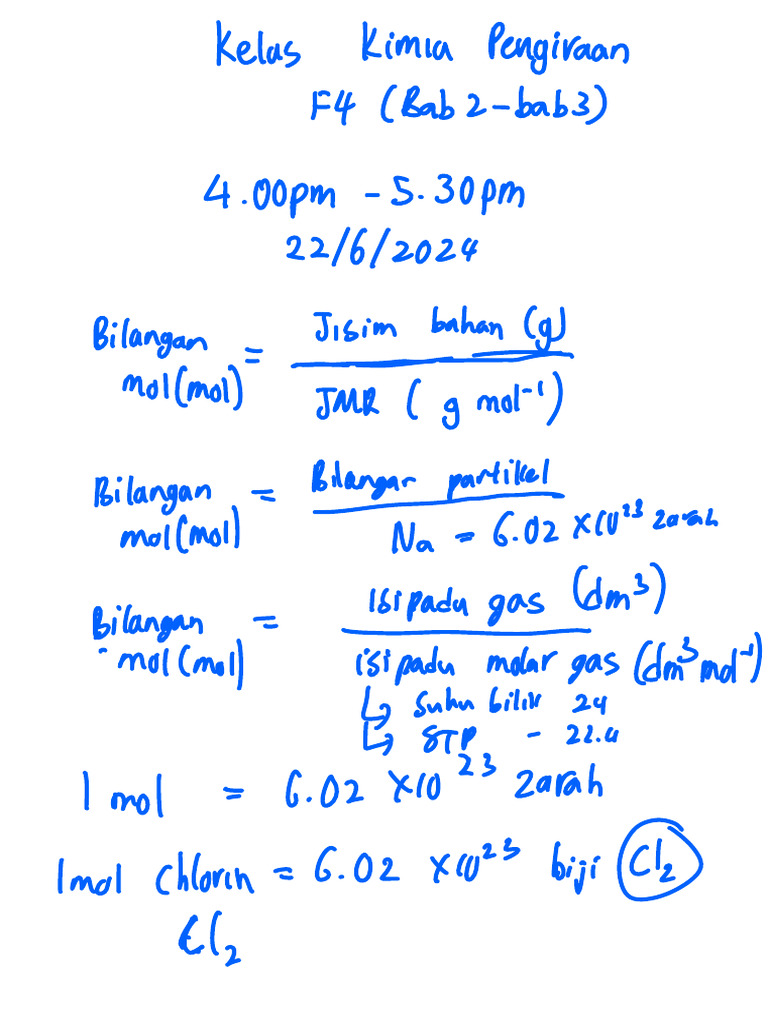 Kelas Kimia Pengiraan
F4 (Bab 2 - bab 3)
4.00pm - 5.30pm
22/6/2024
Bilangan mol (mol) = Jisim bahan (g) / JMR (g mol⁻¹)
Bilangan mol (mol) = Bilangan partikel / Na = 6.02 × 10²³ zarah
Bilangan mol (mol) = isipadu gas (dm³) / isipadu molar gas (dm³ mol⁻¹)
↳ Suhu bilik 24
↳ STP - 22.4
1 mol = 6.02 × 10²³ zarah
1 mol chlorin = 6.02 × 10²³ biji Cl₂
Cl₂